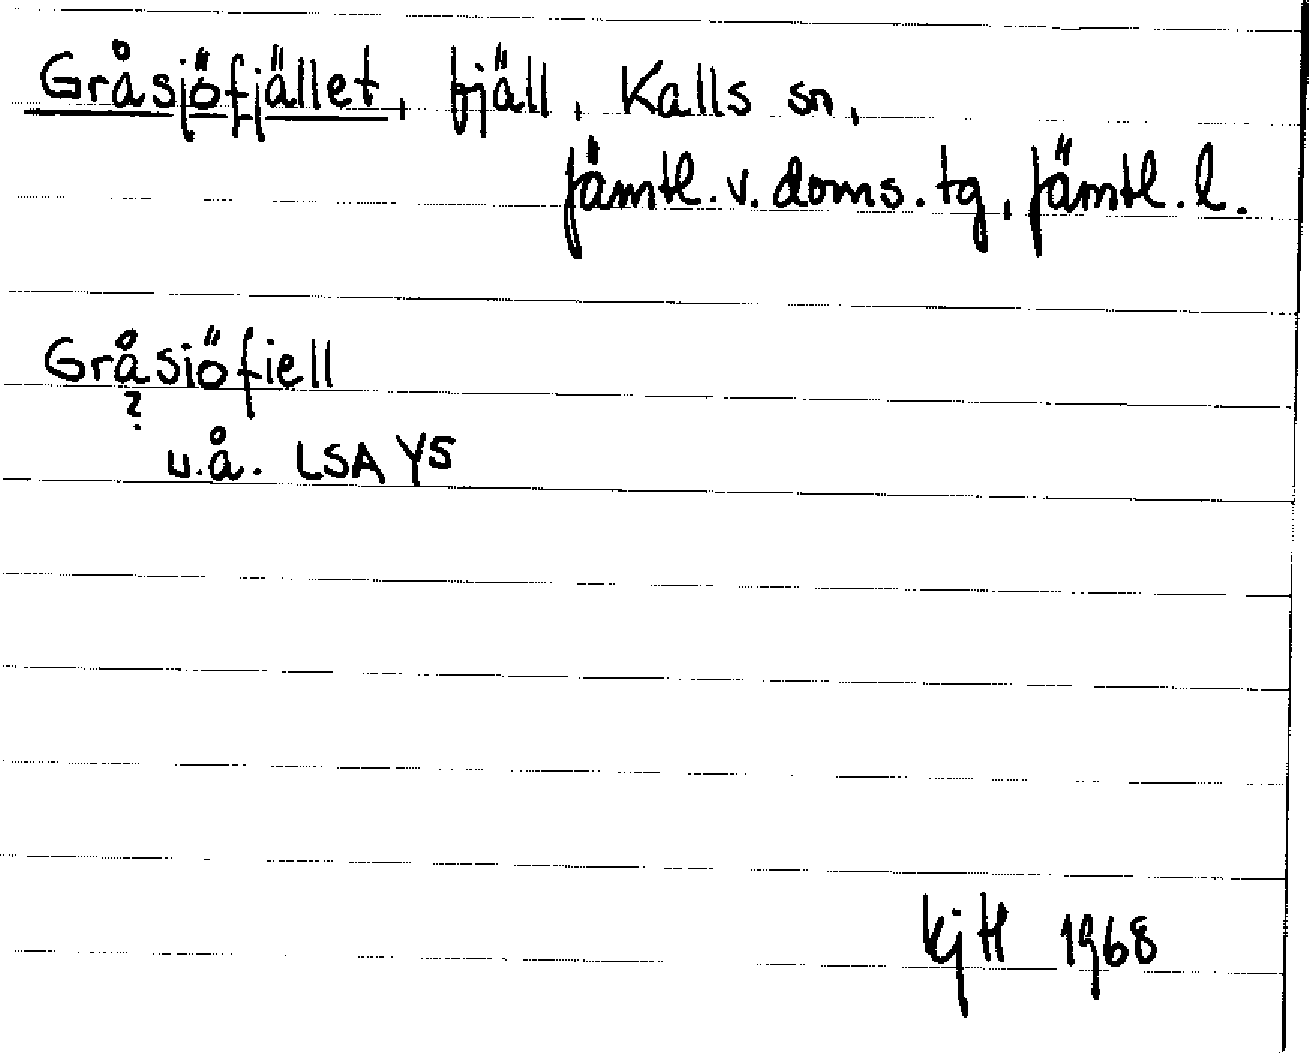 Gråsjöfjället, fjäll, Kalls sn,
Jämtl. v. doms. tg, Jämtl. l.
Gråsiöfiell
?
u.å. LSA Y5
KjH 1968